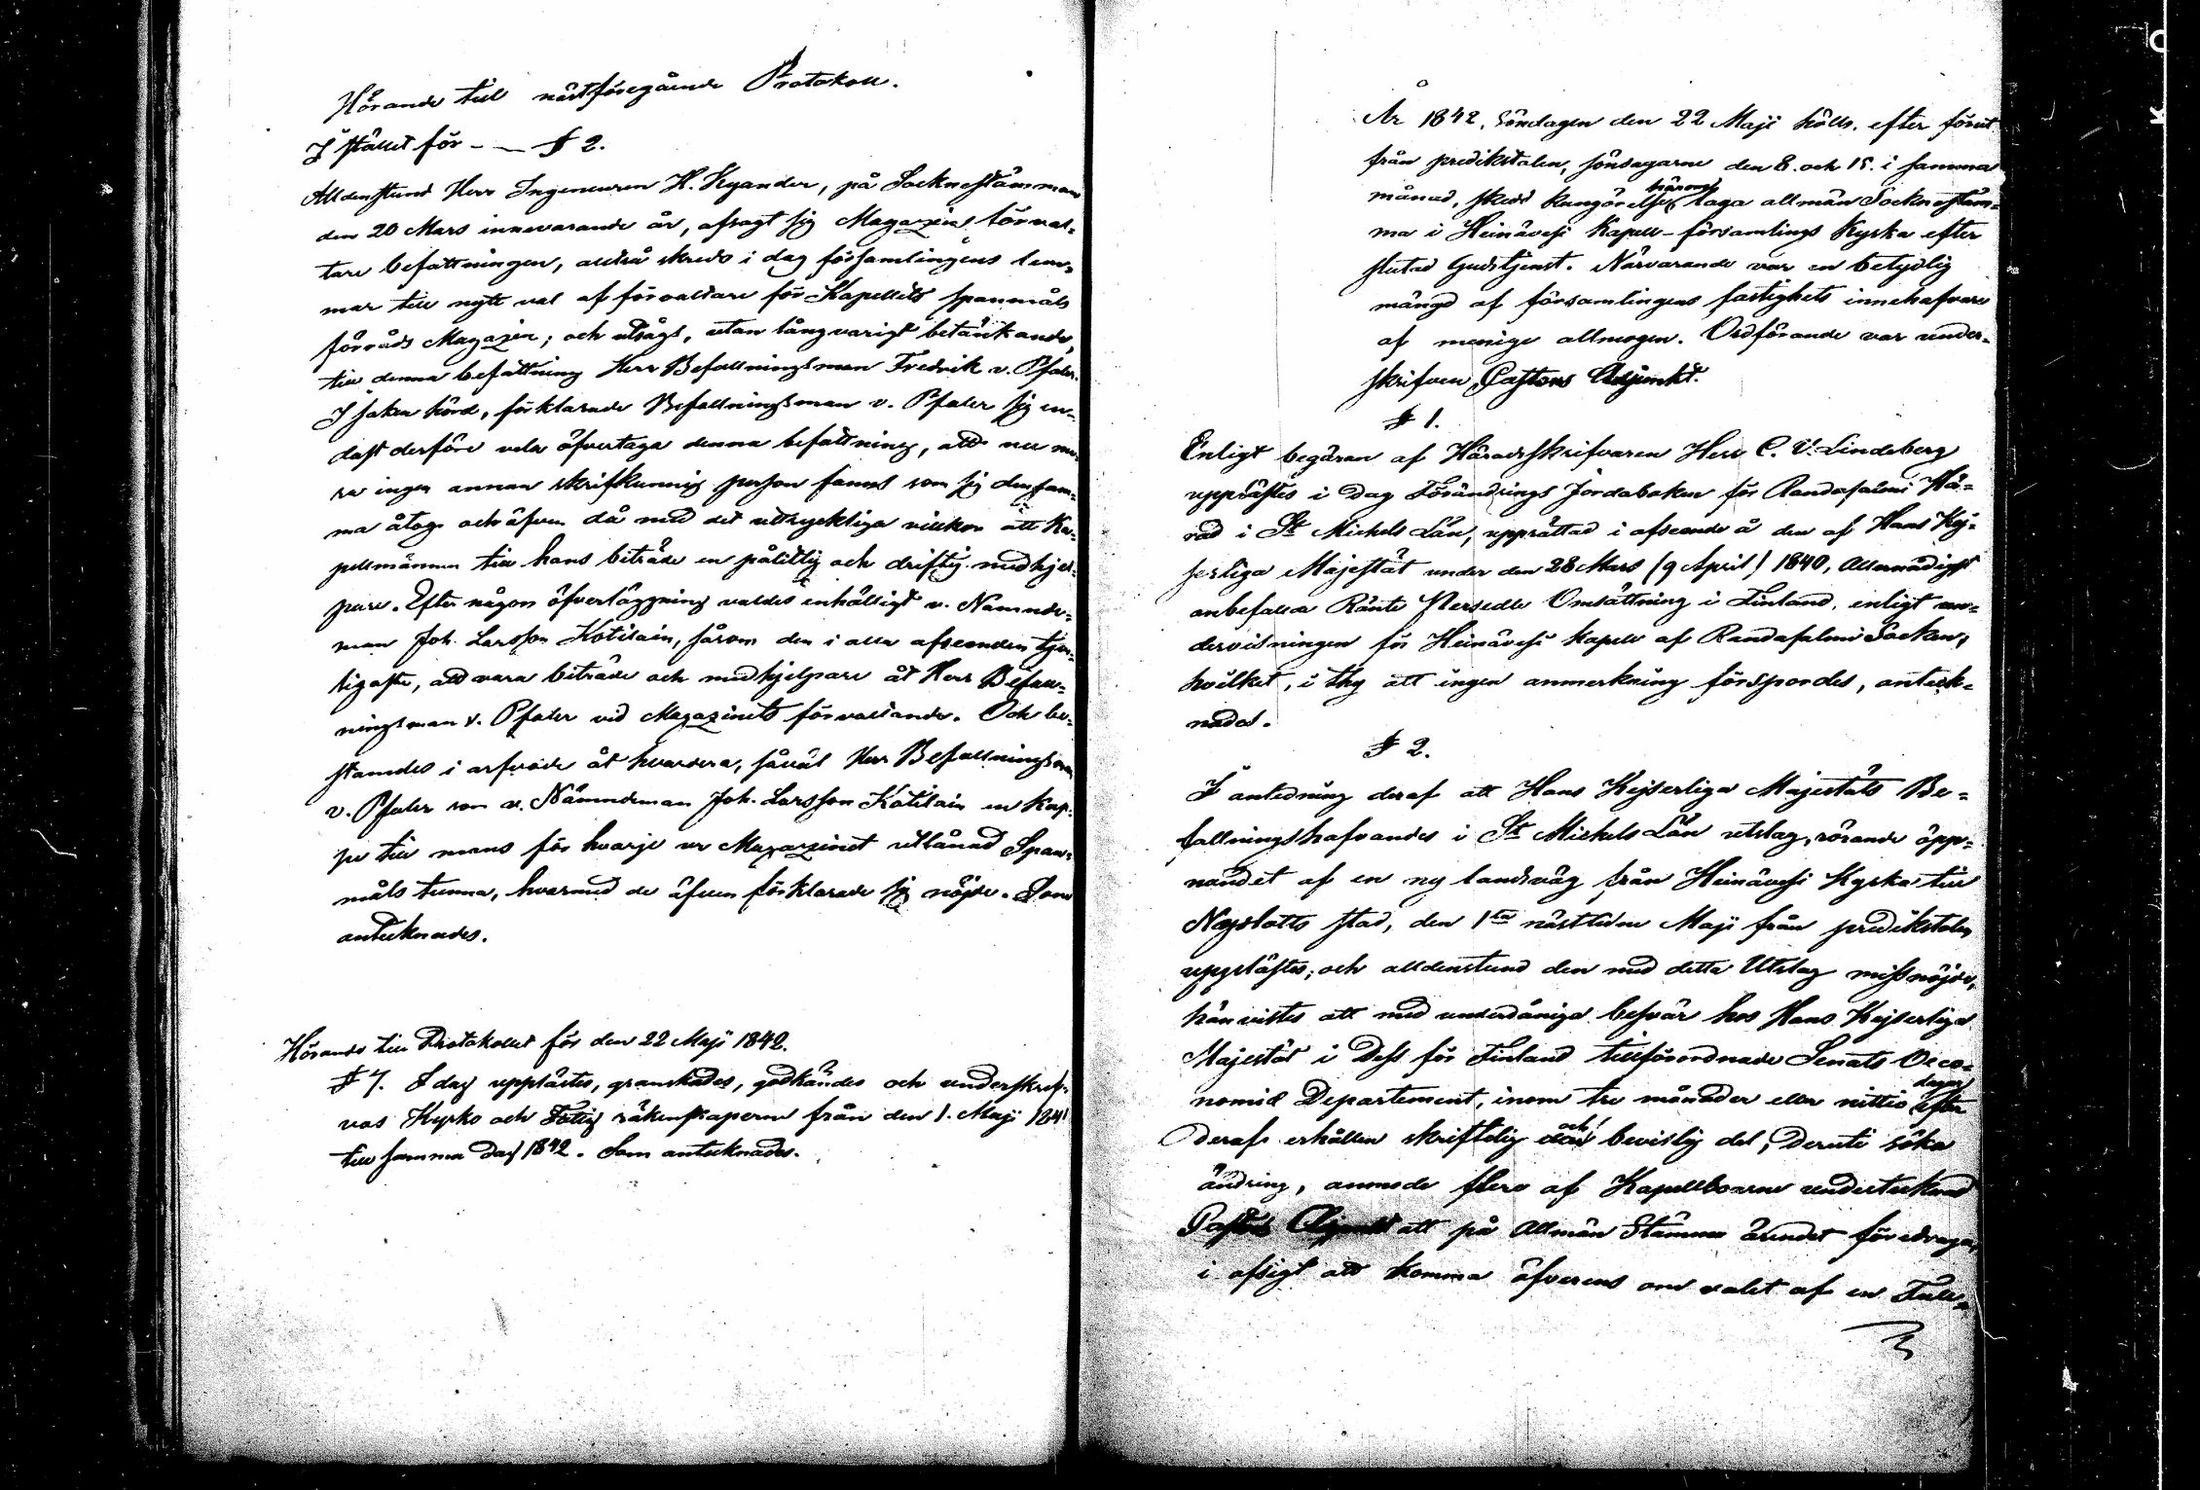 Hörande till nästföregående Protokoll.
I stället för - — § 2.
Alldenstund Herr Ingeneuren H. Kyander, på Socknestämman
den 20 Mars innevarande år, afsagt sig Magazins förval-
tare befattningen, altså skreds i dag församlingens lem-
mar till nytt val af förvaltare för Kapellets spanmåls
förråds Magazin; och utsågs, utan långvarigt betänkande,
till denna befattning Herr Befallningsman Fredrik v. Pfaler.
I saken hörd, förklarade Befallningsman v. Pfaler sig en-
dast derföre vela öfvertaga denna befattning, att nu me-
ra ingen annan skrifkunnig person fanns som sig densam-
ma åtog och äfven då med det uttryckliga villkor att Ka-
pellmännen till hans biträde en pålitlig och driftig medhjel-
pare. Efter någon öfverläggning valdes enhälligt v. Nämnde-
man Joh. Larsson Kotilain, såsom den i alla afseenden tjen-
ligaste, att vara biträde och medhjelpare åt Herr Befall-
ningsman v. Pfaler vid Magazinets förvaltande. Och be-
stämdes i arfvode åt hvardera, såväl Herr Befallningsman
v. Pfaler som v. Nämndeman Joh. Larsson Kotilain en kap-
pe till mans för hvarje ur Magazinet utlånad Span-
måls tunna, hvarmed de äfven förklarade sig nöjde. Som
antecknades.
Hörande till Protokollet för den 22 Maji 1842.
§ 7. I dag upplästes, granskades, godkändes och underskref-
vos Kyrko och Fattig räkenskaperne från den 1. Maji 1841
till samma dag 1842. Som antecknades.
År 1842, Söndagen den 22 Maji hölls, efter förut
från predikstolen, söndagarne den 8. och 15. i samma
månad, skedd kungörelse, laga allmän Socknestäm-
ma i Heinävesi Kapell-församlings Kyrka efter
slutad Gudstjenst. Närvarande var en betydlig
mängd af församlingens fastighets innehafvare
af menige allmogen. Ordförande var under-
skrifven Pastors Adjunkt.
§ 1.
Enligt begäran af Häradsskrifvaren Herr C. V. Lindeberg
upplästes i Dag Förändrings Jordaboken för Randasalmi Hä-
rad i St Michels Län, upprättad i afseende å den af Hans Kej-
serliga Majestät under den 28 Mars (9 April) 1840, Allernådigst
anbefalda Ränte Persedle Omsättning i Finland, enligt un-
dervisningen för Heinävesi kapell af Randasalmi Socken,
hvilket, i thy att ingen anmerkning förspordes, anteck-
nades.
§ 2.
I anledning deraf att Hans Kejserliga Majestäts Be-
fallningshafvandes i St Michels Län utslag, rörande öpp-
nandet af en ny landsväg från Heinävesi Kyrka till
Nyslotts stad, den 1sta nästledne Maji från predikstolen
upplästes; och alldenstund den med detta Utslag missnöjde,
hänvistes att med underdåniga besvär hos Hans Kejserliga
Majestät i Dess för Finland tillförordnade Senats Oeco-
nomie Departement, inom tre månader eller nittio dagar efter
deraf erhållen skriftelig och bevislig del, deruti söka
ändring, anmode flere af Kapellboarne undertecknad
Pastors Adjunkt att på Allmän Stämma ärendet föredraga,
i afsigt att komma öfverens om valet af en Full-